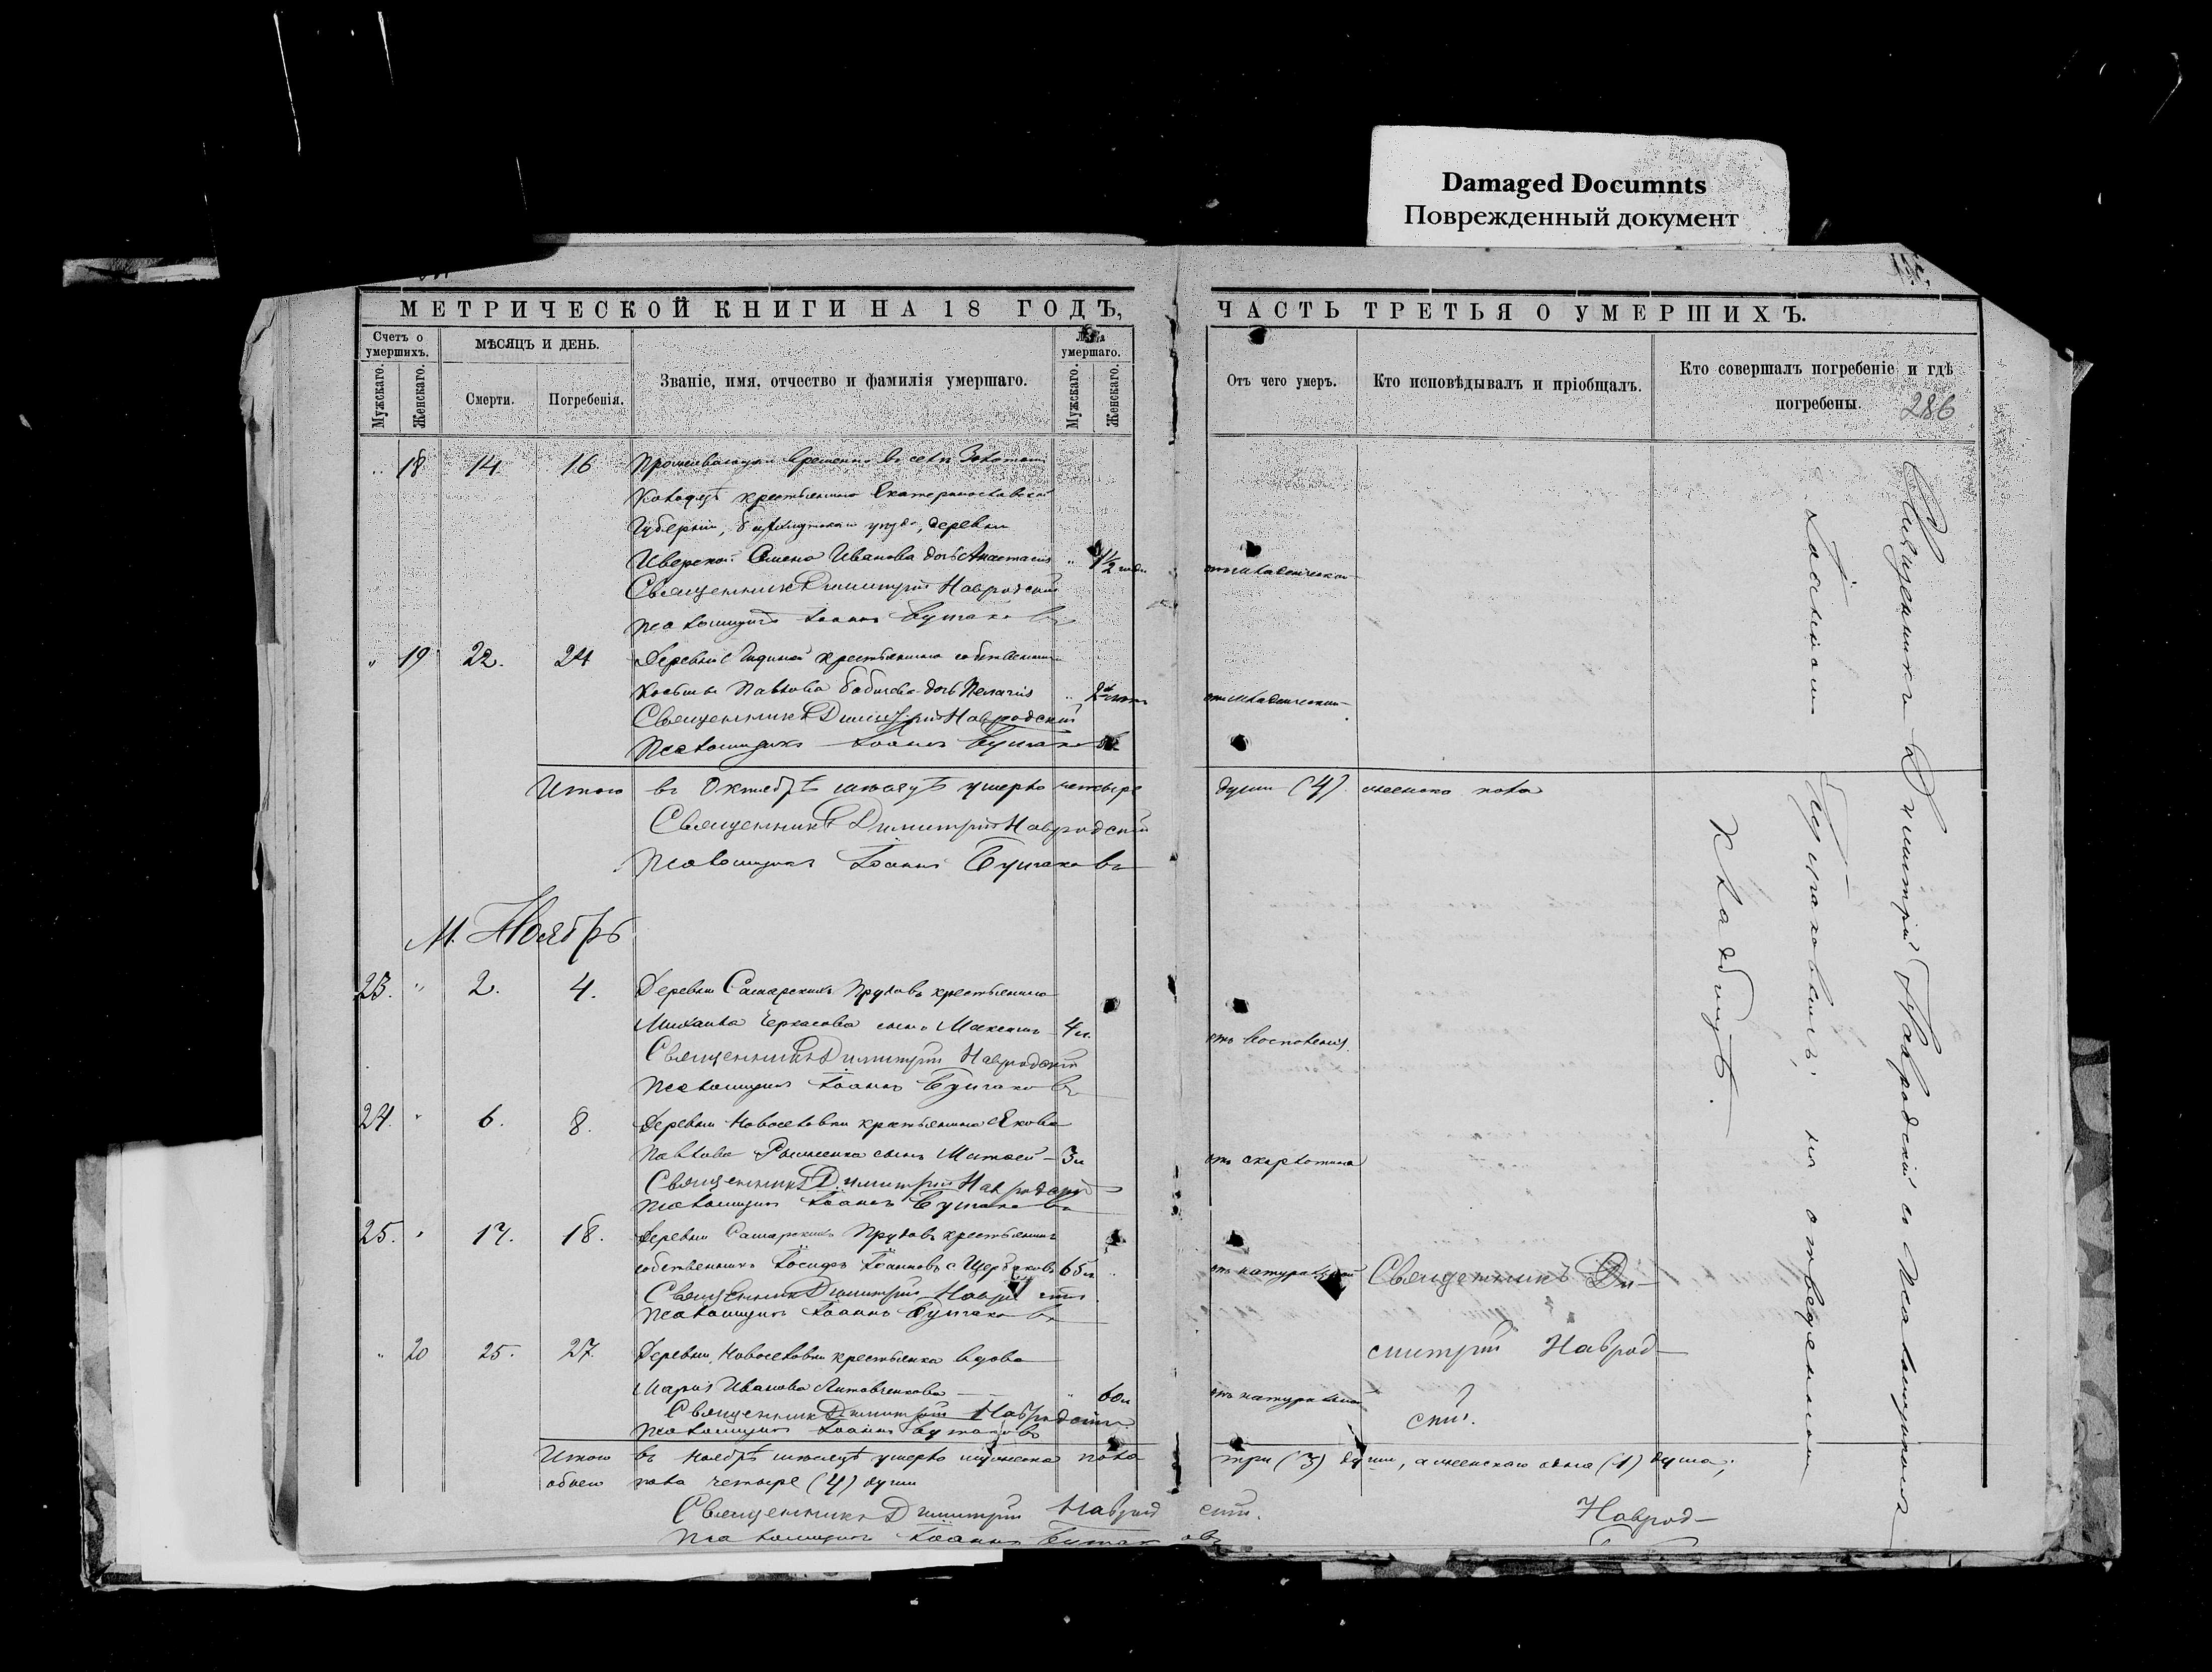 Damaged Documnts
Поврежденный документ
МЕТРИЧЕСКОЙ КНИГИ НА 18 ГОДЪ,
ЧАСТЬ ТРЕТЬЯ О УМЕРШИХЪ.
Счетъ о умершихъ.
МѢСЯЦЪ И ДЕНЬ.
Званіе, имя, отчество и фамилія умершаго.
умершаго.
Мужскаго.
Женскаго.
Смерти.
Погребенія.
Мужскаго.
Женскаго.
Отъ чего умеръ.
Кто исповѣдывалъ и пріобщалъ.
Кто совершалъ погребеніе и гдѣ погребены.
286
18 14 16 Проживающаго временно въ селѣ
крестьянина Екатеринославской
Губерніи, уѣзда, деревни
Семена Иванова дочь Анастасія 1½ года
Священникъ Димитрій Навродскій
Псаломщикъ Іоаннъ
19 22. 24 Деревни крестьянина собственника
Павлова дочь Пелагія
Священникъ Димитрій Навродскій
Псаломщикъ Іоаннъ
Итого въ Октябрѣ мѣсяцѣ умерло четыре души (4) женска пола
Священникъ Димитрій Навродскій
Псаломщикъ Іоаннъ
М. Ноябрь
23. 2. 4. Деревни Самарскихъ Прудовъ крестьянина
Михаила Черкасова сынъ Максимъ 4 л. отъ воспаленія
Священникъ Димитрій Навродскій
Псаломщикъ Іоаннъ
24. 6. 8. Деревни Новоселовки крестьянина Якова
Павлова сынъ Матвей 3 л отъ скарлатина
Священникъ Димитрій Навродскій
Псаломщикъ Іоаннъ
25. 17. 18. Деревни Самарскихъ Прудовъ крестьянинъ
собственникъ Іосифъ Іоанновъ Щербаковъ 65 л отъ натуральной
Священникъ Димитрій
Псаломщикъ Іоаннъ
20 25. 27. Деревни Новоселовки крестьянка вдова
Марія Иванова Литовченкова 60 л отъ натуральной
Священникъ Димитрій Навродскій
Псаломщикъ Іоаннъ
Священникъ Ди-
митрій Наврод-
скій.
Итого въ Ноябрѣ мѣсяцѣ умерло мужеска пола три (3) души, а женскаго одна (1) душа;
обоего пола четыре (4) души
Священникъ Димитрій Навродскій.
Псаломщикъ Іоаннъ
Наврод-
Священникъ Димитрій Навродскій съ Псаломщикомъ
Іоанномъ на отведенномъ
кладбищѣ.